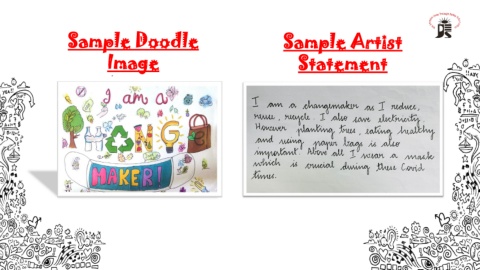 Sample Doodle
Image
I am a
CHANGE
MAKER!
Sample Artist
Statement
I am a changemaker as I reduce,
reuse, recycle. I also save electricity.
However planting trees, eating healthy
and using paper bags is also
important. Above all I wear a mask
which is crucial during these Covid
times.